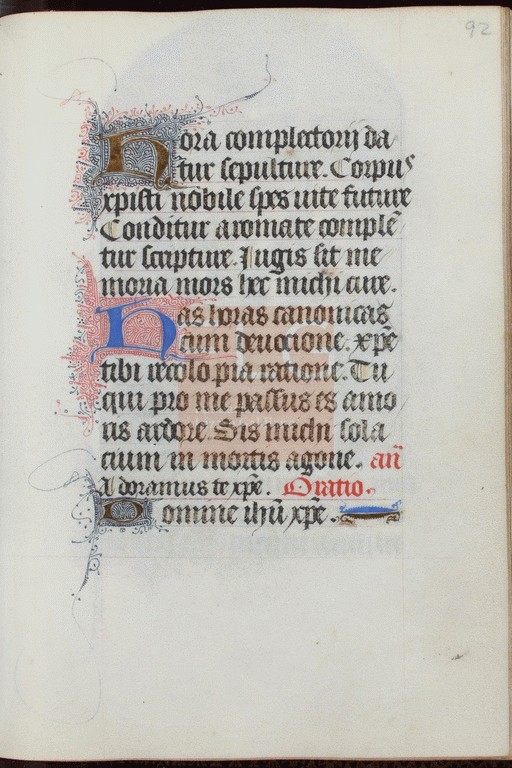 92
Hora completorij da
tur sepulture. Corpus
xpisti nobile spes uite future
Conditur aromate complē
tur scripture. Iugis sit me
moria mors hec michi cure.
Has horas canonicas
cum deuocione. xp̄e
tibi recolo pia ratione. Tu
qui pro me passus es amo
ris ardore Sis michi sola
cium in mortis agone. an̄
Adoramus te xp̄e. Oratio.
Domine ihū xp̄e.